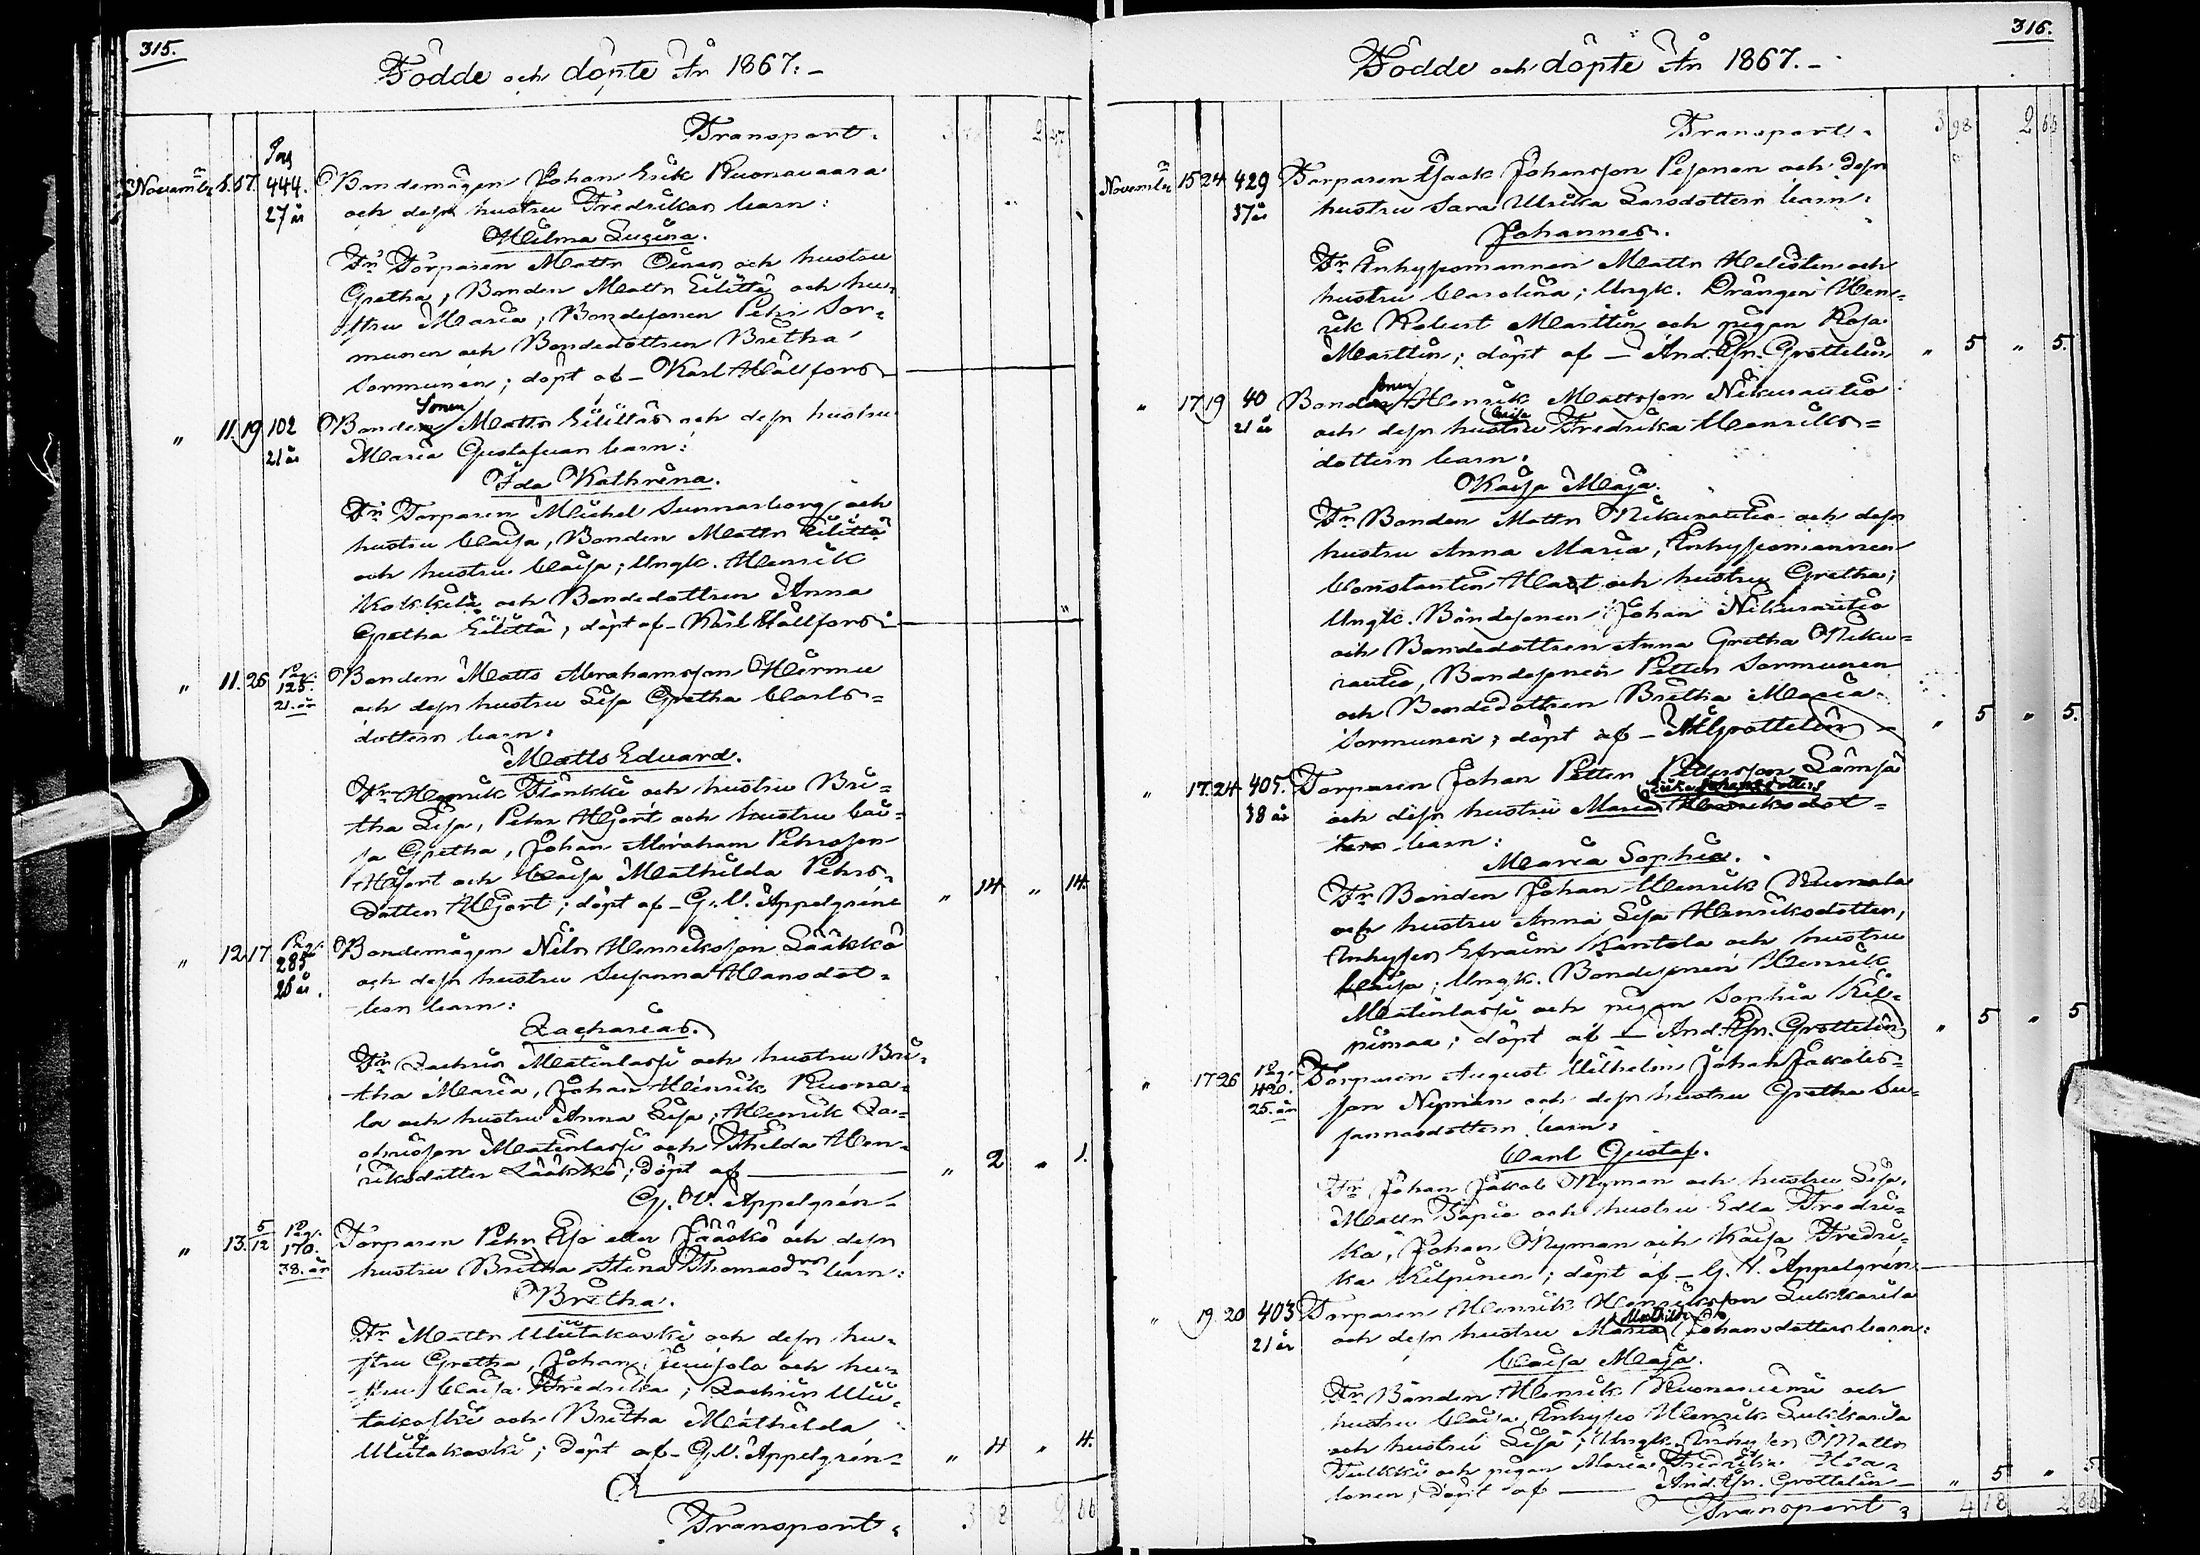 315.
Födde och döpte År 1867.
Transport.
Pag
November 5. 17. 444. Bondemågen Johan Erik Ruonavaara
27 år och dess hustru Fredrikas barn:
Hilma
Fr. Torparen Matts och hustru
Gretha, Bonden Matts Eilittä och hu-
stru Maria, Bondesonen Pehr Sor-
munen och Bondedottren Bretha
Sormunen; döpt af - Karl Hällfors
sonen
" 11. 19 102 Bonden Matts Eilittäs och dess hustru
21 år Maria barn:
Ida Kathrina.
Fr. Torparen Michel Sunnarborg och
hustru Caisa, Bonden Matts Eilittä
och hustru Caisa; Ungk. Henrik
Kokkila och Bondedottren Anna
Gretha Eilittä, döpt af - Karl Hällfors
" 11. 26 Pag. 125. Bonden Matts Abrahamsson Hermu
21. år och dess hustru Lisa Gretha Carls-
dottern barn:
Matts Eduard.
Fr. Henrik och hustru Bri-
tha Lisa, Pehr Hjort och hustru Cai-
sa Gretha, Johan Abraham Pehrsson
Hjort och Caisa Mathilda Pehrs-
dotter Hjort; döpt af - G. V. Appelgrén " 14 " 14.
" 12. 17 Pag. 285 Bondemågen Nils Henriksson Lääkkö
26 år. och dess hustru Susanna Hansdot-
tern barn:
Zacharias.
Fr. Zachris Matinlassi och hustru Bri-
tha Maria, Johan Henrik Ruona-
la och hustru Anna Lisa; Henrik Za-
chrisson Matinlassi och Thilda Hen-
riksdotter Lääkkö; döpt af " 2 " 1.
G. V. Appelgrén
" 13. 5/12 Pag. 170. Torparen Pehr eller Jääskö och dess
38. år hustru Bretha Stina Thomasdrs barn:
Bretha.
Fr. Matts Ulütakoski och dess hu-
stru Gretha, Johan och hu-
stru Caisa Fredrika; Zachris
och Bretha Mathilda
; döpt af - G. V. Appelgrén " 4 " 4.
Transport.
316.
Födde och döpte År 1867.
Transport. 3 98 2 66
November 15 24 429 Torparen Isaak Johansson Pesonen och dess
37 år hustru Sara Ulrika Larsdottern barn:
Johannes.
Fr. Inhysomannen Matts Helisten och
hustru Carolina; Ungk. Drängen Hen-
rik Robert Marttin och pigan Kajsa
Marttin; döpt af - And. Grottelin " 5 " 5.
sonen
" 17 19 40 Bonden Henrik Mattsson Nikurautio
Caisa
21 år och dess hustru Fredrika Henriks-
dottern barn:
Kaisa Maja.
Fr. Bonden Matts Nikurautio och dess
hustru Anna Maria, Inhysomannen
Constantin och hustru Gretha;
Ungk. Bondesonen Johan Nikurautio
och Bondedottren Anna Gretha Niku-
rautio, Bondesonen Petter Sormunen
och Bondedottren Bretha Maria
Sormunen; döpt af - Grottelin " 5 " 5.
" 17. 24 405. Torparen Johan Petter Pettersson Lämsä
38 år och dess hustru Maria Henriksdot-
tern barn:
Maria Sophia.
Fr. Bonden Johan Henrik Ruonala
och hustru Anna Lisa Henriksdotter,
Inhyses Efraim Kantola och hustru
Caisa; Ungk. Bondesonen Henrik
Matinlassi och pigan Sophia Kil-
pimaa; döpt af - And. Grottelin " 5 " 5
" 17 26 Pag. 420. Torparen August Wilhelm Johan Jakobs-
25. år son Nyman och dess hustru Gretha Su-
sannasdottern barn:
Carl Gustaf.
Fr. Johan Jakob Nyman och hustru Lisa,
Matts Tapio och hustru Edla Fredri-
ka, Johan Nyman och Kaisa Fredri-
ka Kilpinen; döpt af - G. V. Appelgrén
" 19. 20 403 Torparen Henrik Henriksson Lukkarila
Mathilda
21 år och dess hustru Maria Johansdotters barn:
Caisa Maja.
Fr. Bonden Henrik Ruonaniemi och
hustru Caisa, Inhyses Henrik Lukkarila
och hustru Lisa; Ungk. Matts
Tulkki och pigan Maria Fredrika
; döpt af And. Grottelin " 5 " 5
Transport. 4 18 2 86